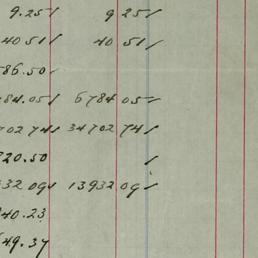 9.25/ 9 25/
40 51/ 40 51/
86.50
84.05/ 6784 05/
702 74/ 34702 74/
20.50 /
32 09/ 13932 09/
40.23
49.37